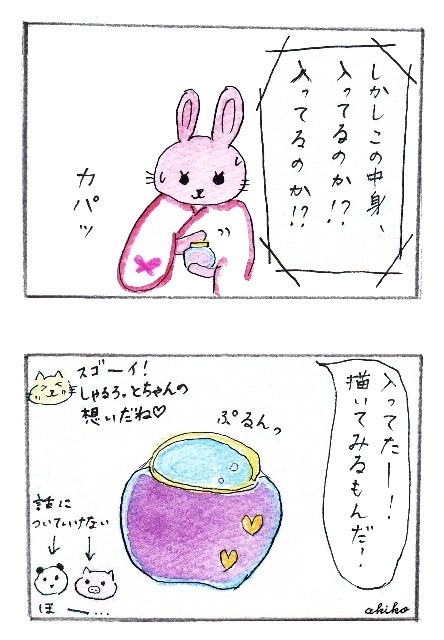 しかしこの中身、
入ってるのか!?
入ってるのか!?
カパッ
入ってたー!
描いてみるもんだ!
スゴーイ!
しゃるろっとちゃんの
想いだね♡
ぷるんっ
話に
ついていけない
ほー…
akiko